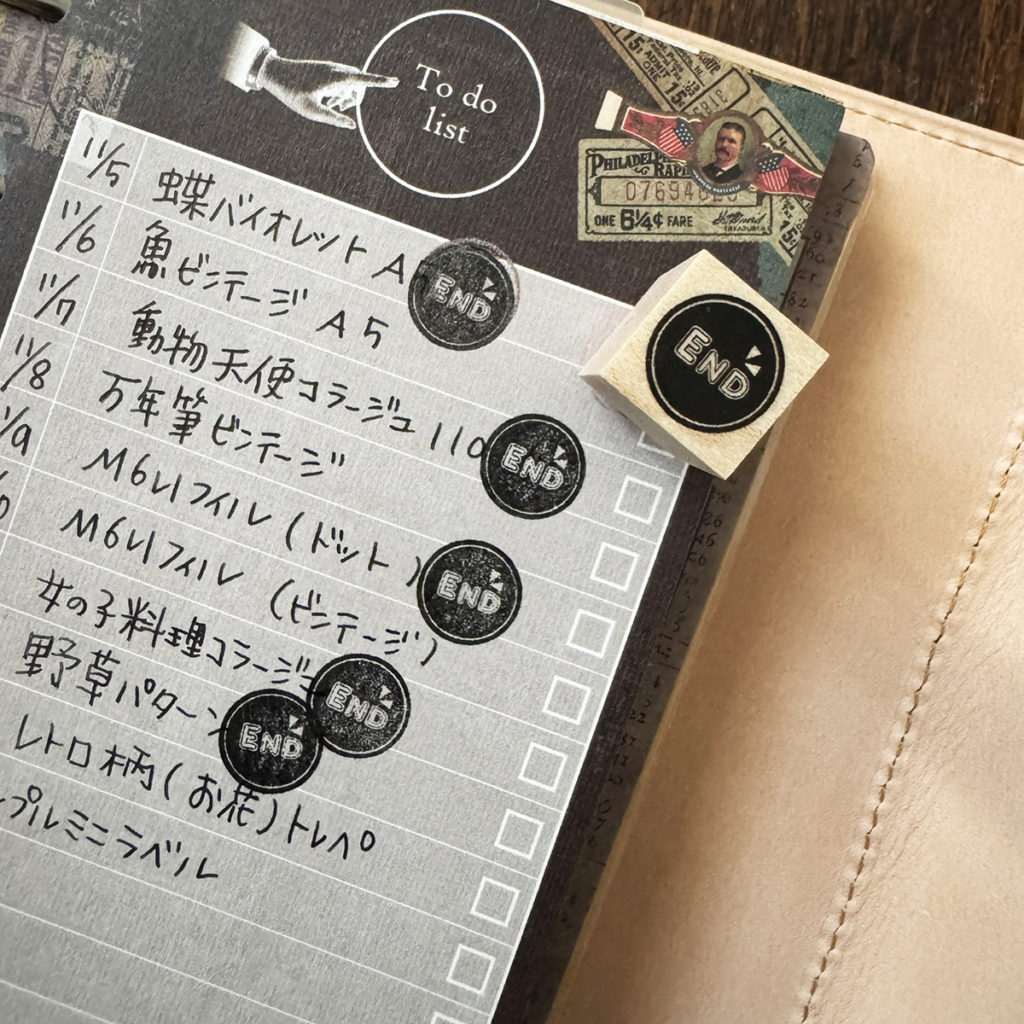 To do
list
PHILADELPHIA
RAPI
07694
ONE 6¼¢ FARE
11/5 蝶バイオレット A
11/6 魚ビンテージ A5
11/7 動物天使コラージュ 110
11/8 万年筆ビンテージ
1/9 M6リフィル (ドット)
M6リフィル (ビンテージ)
女の子料理コラージュ
野草パターン
レトロ柄(お花)トレペ
プルミニラベル
END
END
END
END
END
END